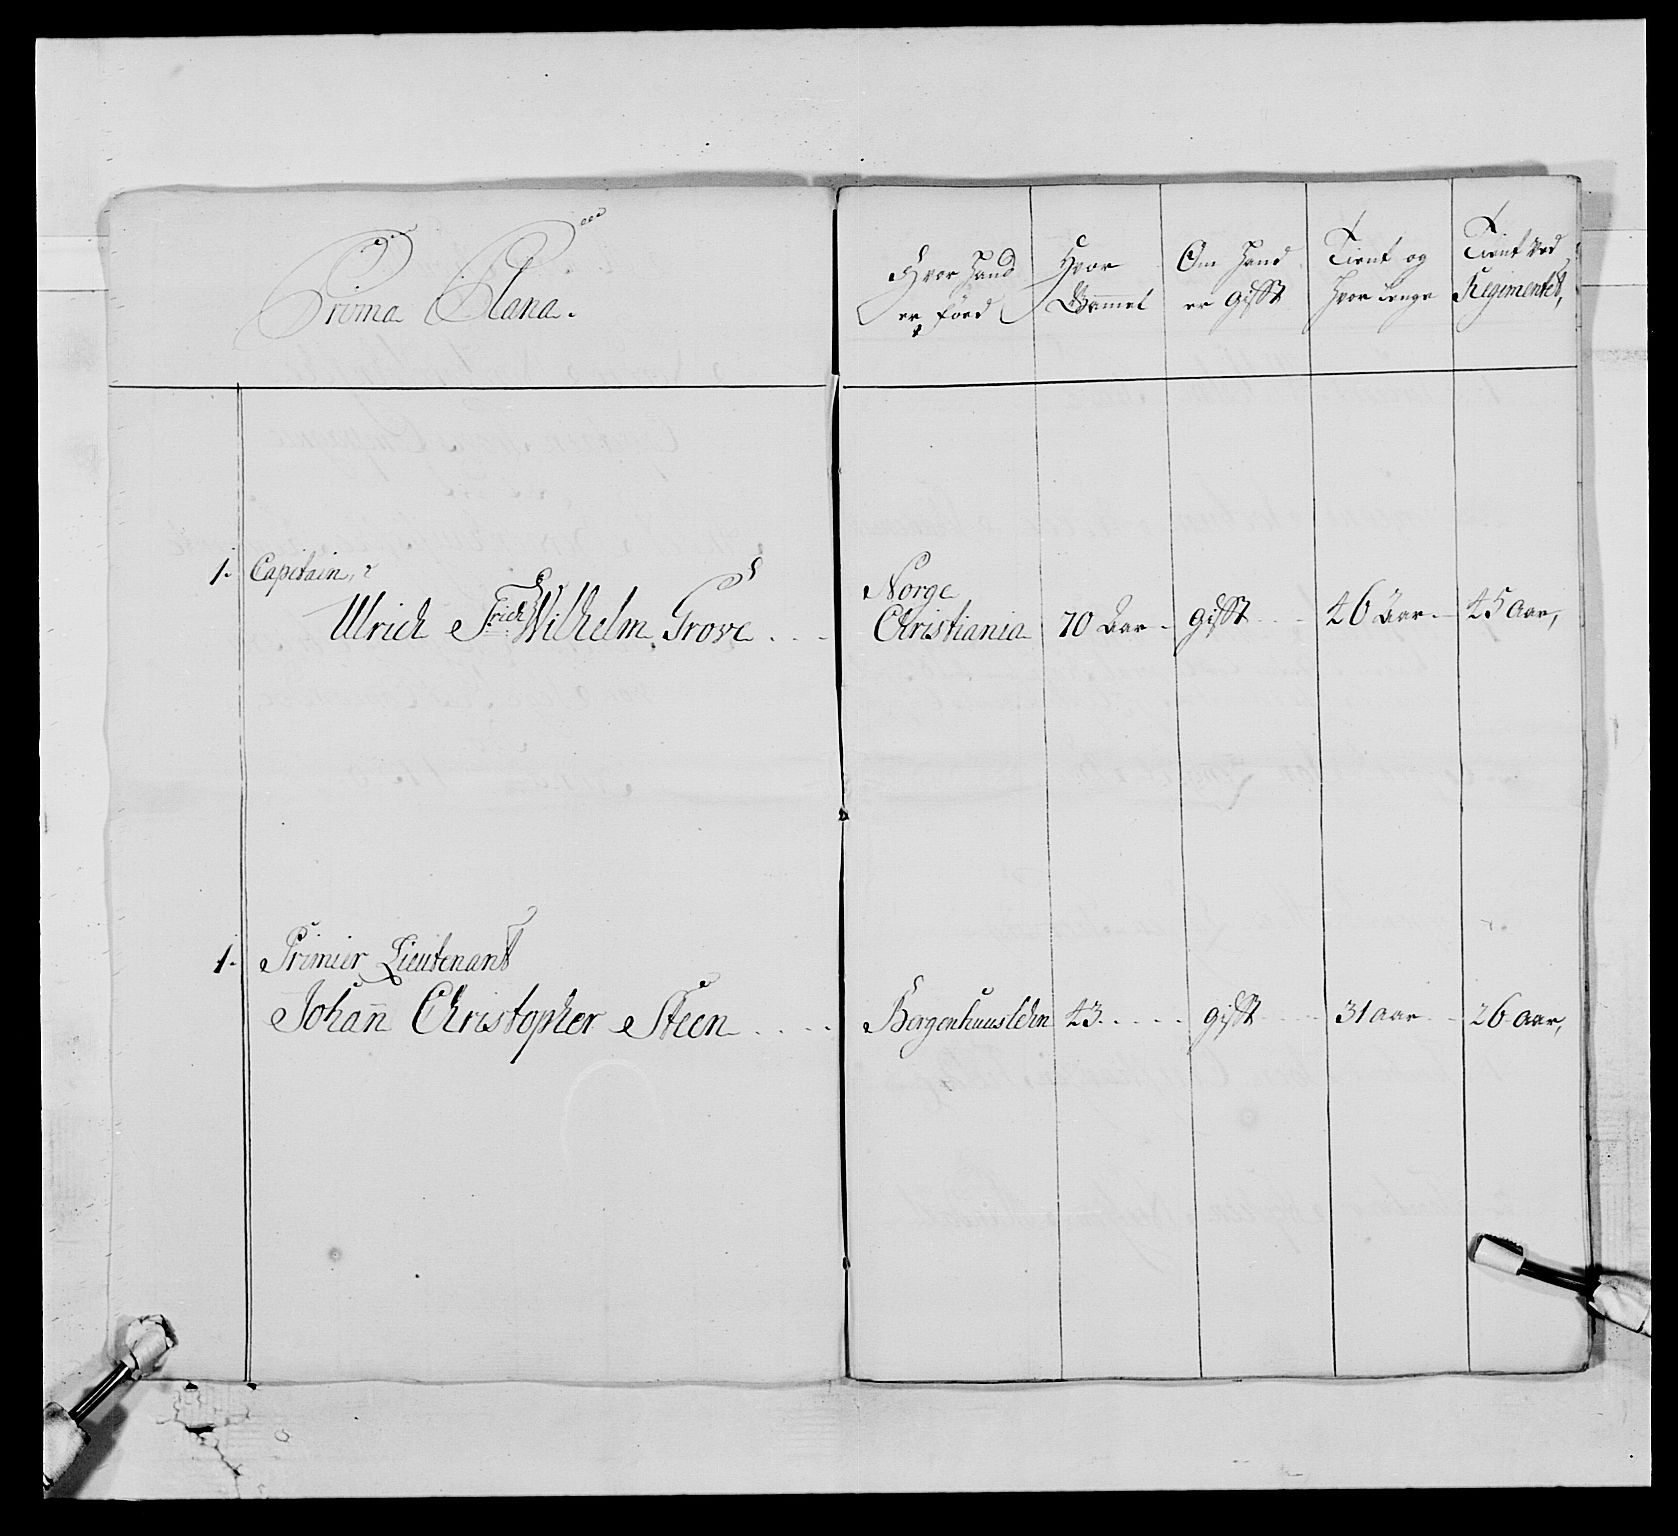 Prima Plana.
Hvor Hand
er föed
Hvor
Gammel
Om Hand
er gifft
Tient og
hvor lenge
Tient ved
Regimentet,
1. Capitain,
Ulrich Fridr: Wilhelm Grove . . .
Norge
Christiania
70 Aar
gifft
46 Aar
45 Aar,
1. Primier Lieutenant
Johan̄ Christopher Steen . . . .
Bergenhuuslehn
43. . . . .
gifft
31 Aar
26 Aar,